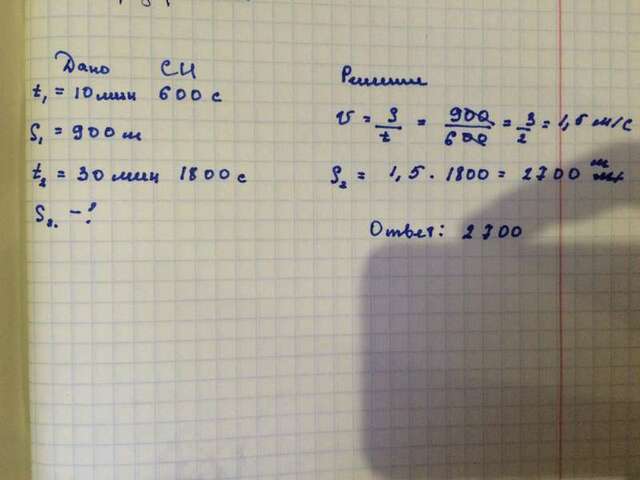 Дано СИ
t₁ = 10 мин 600 с
S₁ = 900 м
t₂ = 30 мин 1800 с
S₂ - ?
Решение
v = S/t = 900/600 = 3/2 = 1,5 м/с
S₂ = 1,5 · 1800 = 2700 м
Ответ: 2700